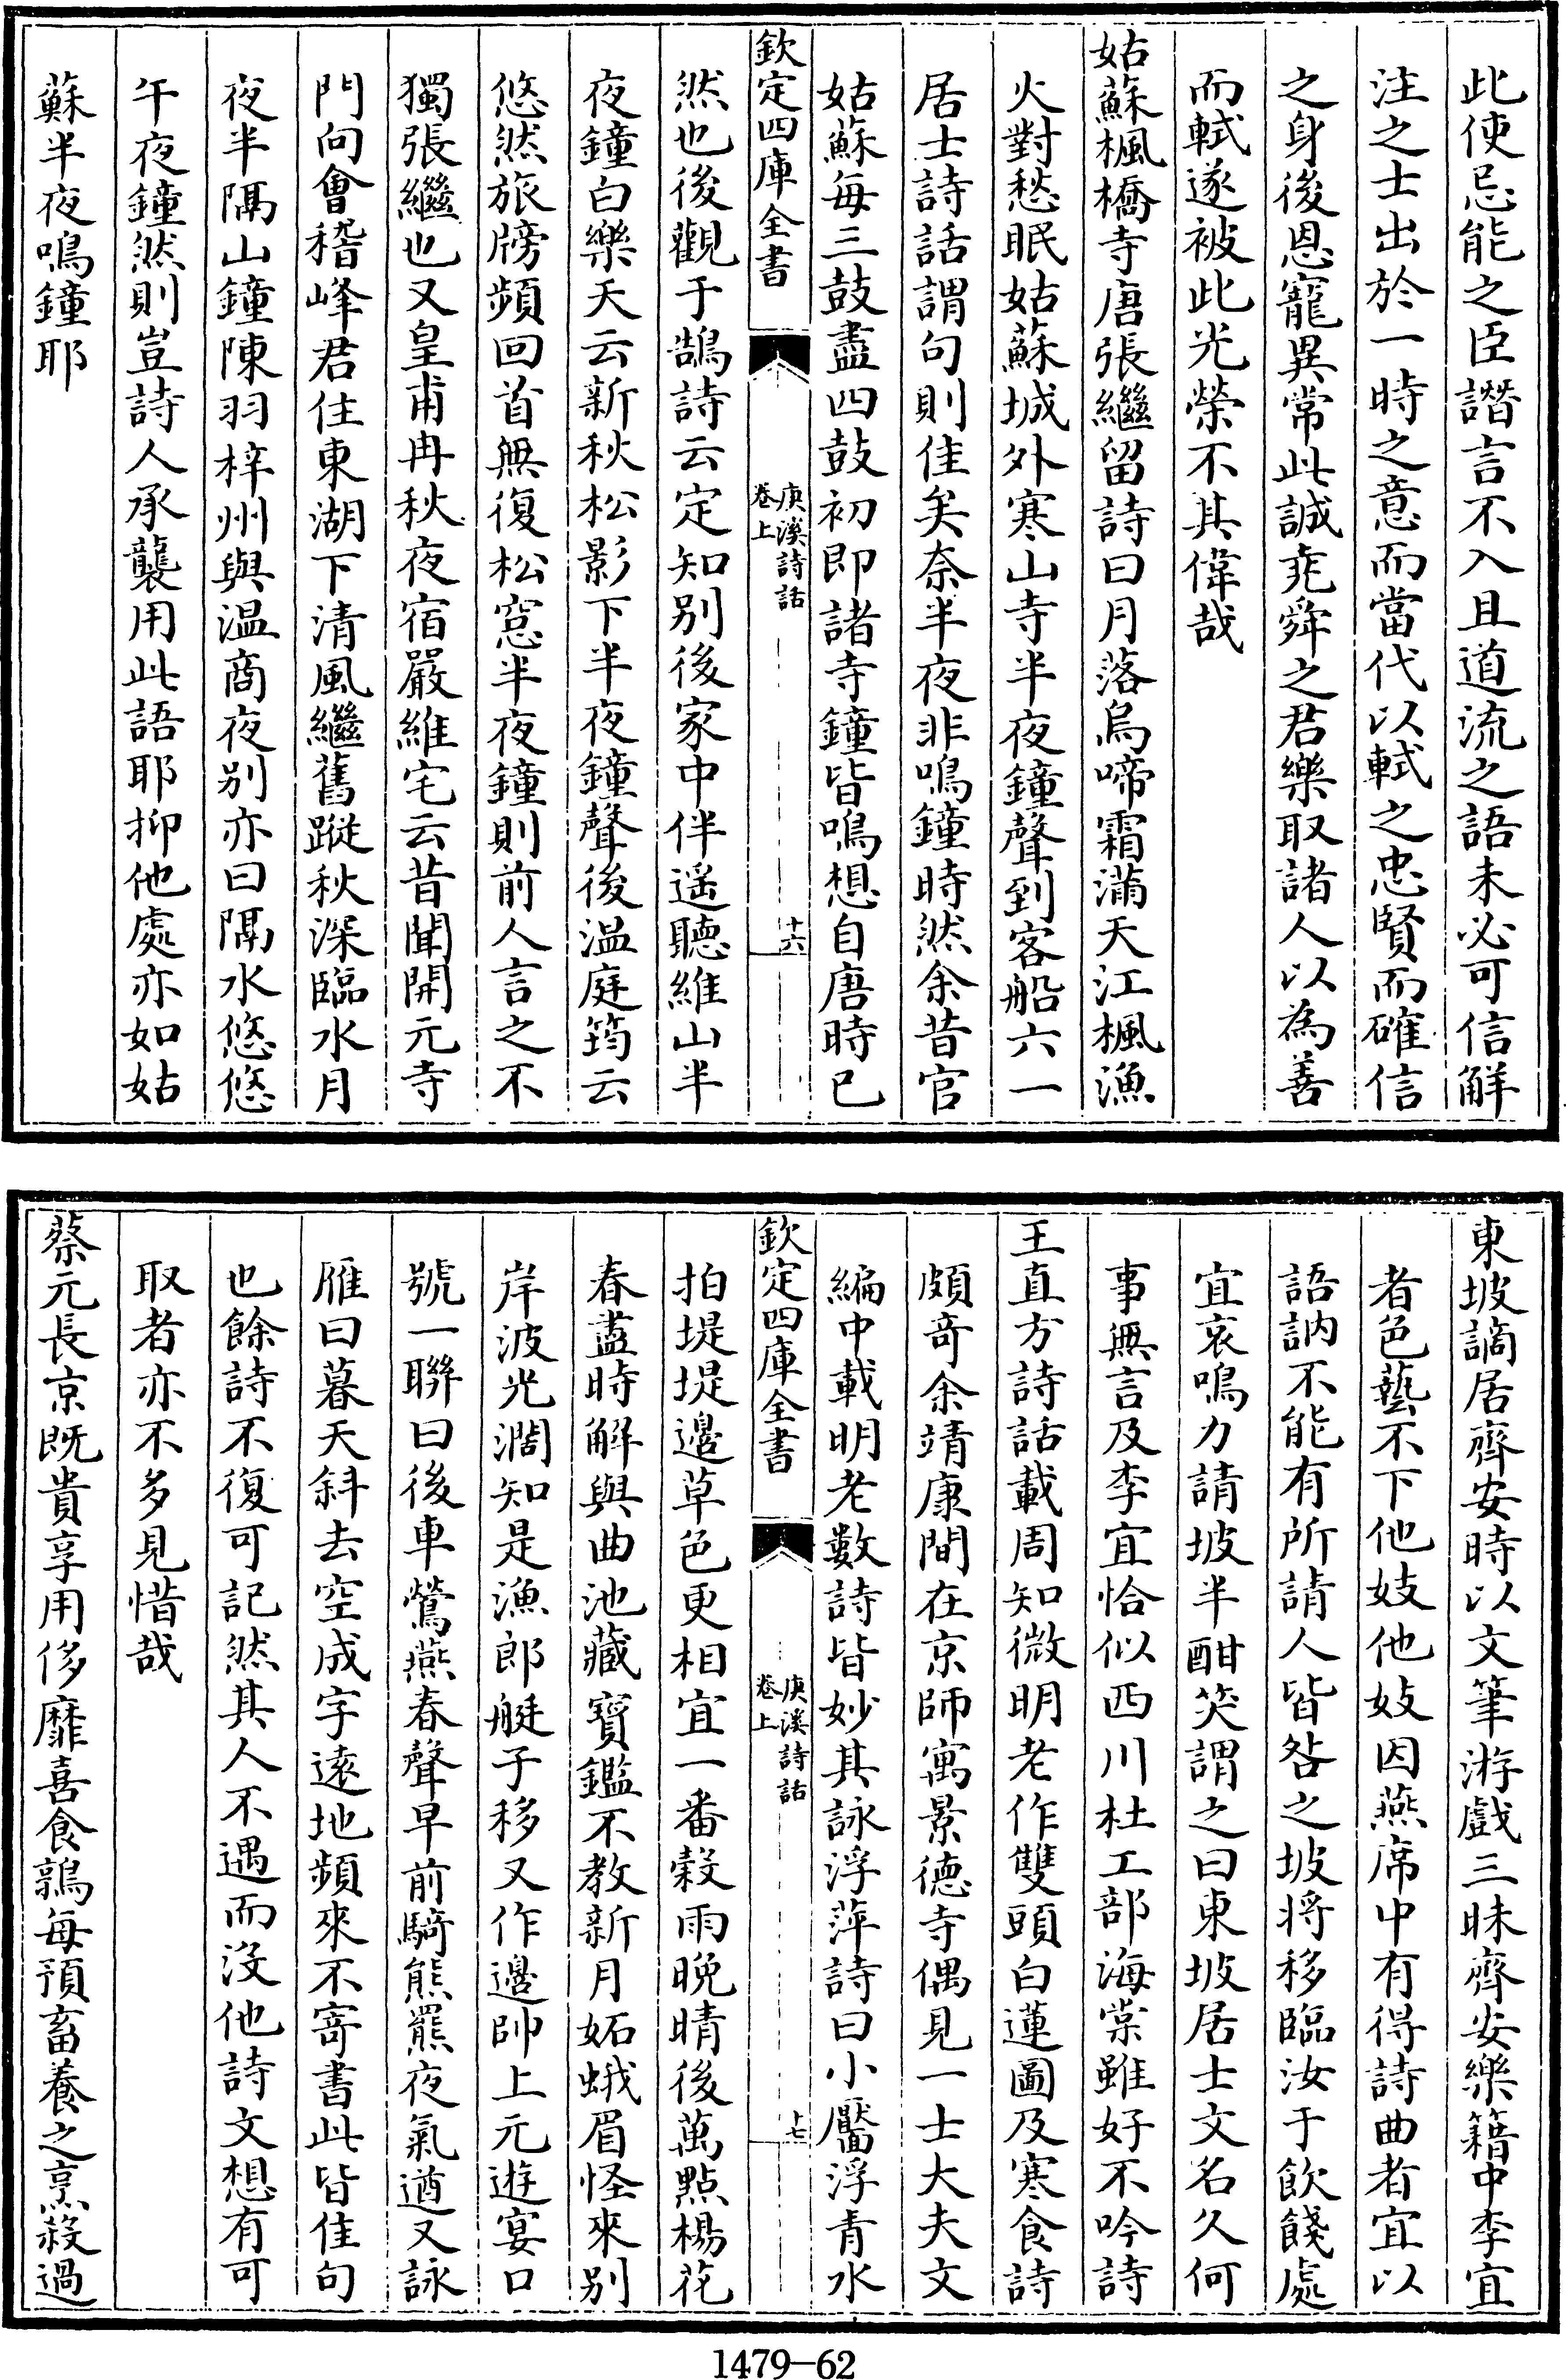 此使忌能之臣譖言不入且道流之語未必可信解
注之士出於一時之意而當代以軾之忠賢而確信
之身後恩寵異常此誠堯舜之君樂取諸人以為善
而軾遂被此光榮不其偉哉
姑蘇楓橋寺唐張繼留詩曰月落烏啼霜滿天江楓漁
火對愁眠姑蘇城外寒山寺半夜鐘聲到客船六一
居士詩話謂句則佳矣奈半夜非鳴鐘時然余昔官
姑蘇每三鼓盡四鼓初即諸寺鐘皆鳴想自唐時已
欽定四庫全書
庚溪詩話
卷上
十六
然也後觀于鵠詩云定知别後家中伴遥聽維山半
夜鐘白樂天云新秋松影下半夜鐘聲後温庭筠云
悠然旅牓頻回首無復松窓半夜鐘則前人言之不
獨張繼也又皇甫冉秋夜宿嚴維宅云昔聞開元寺
門向會稽峰君住東湖下清風繼舊蹤秋深臨水月
夜半隔山鐘陳羽梓州與温商夜别亦曰隔水悠悠
午夜鐘然則豈詩人承襲用此語耶抑他處亦如姑
蘇半夜鳴鐘耶
東坡謫居齊安時以文筆游戲三昧齊安樂籍中李宜
者色藝不下他妓他妓因燕席中有得詩曲者宜以
語訥不能有所請人皆咎之坡將移臨汝于飲餞處
宜哀鳴力請坡半酣笑謂之曰東坡居士文名久何
事無言及李宜恰似西川杜工部海棠雖好不吟詩
王直方詩話載周知微明老作雙頭白蓮圖及寒食詩
頗奇余靖康間在京師寓景德寺偶見一士大夫文
編中載明老數詩皆妙其詠浮萍詩曰小靨浮青水
欽定四庫全書
庚溪詩話
卷上
十七
拍堤堤邉草色更相宜一番榖雨晚晴後萬點楊花
春盡時解與曲池藏寳鑑不教新月妬蛾眉怪來别
岸波光濶知是漁郎艇子移又作邉帥上元遊宴口
號一聯曰後車鶯燕春聲早前騎熊羆夜氣遒又詠
雁曰暮天斜去空成字遠地頻來不寄書此皆佳句
也餘詩不復可記然其人不遇而没他詩文想有可
取者亦不多見惜哉
蔡元長京既貴享用侈靡喜食鶉每預畜養之烹殺過
1479-62